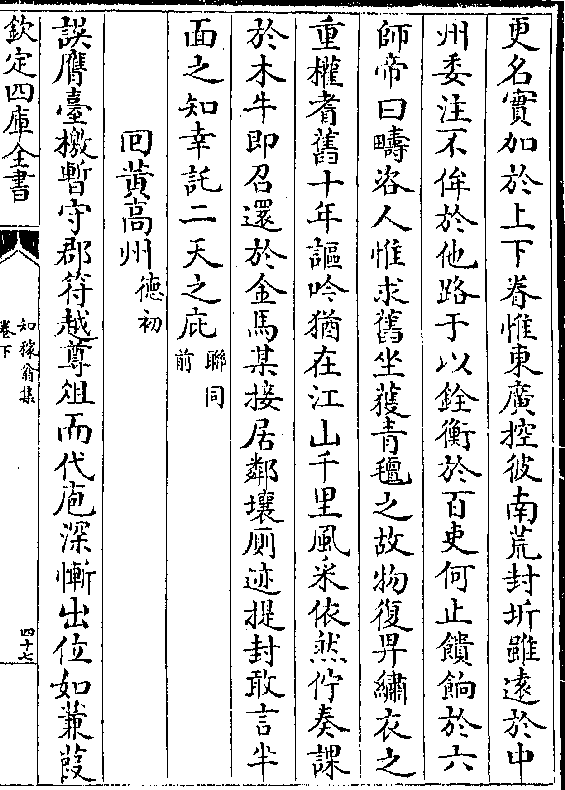 吏名實加於上下眷惟東廣控彼南荒封圻雖遠於中
州委注不侔於他路于以銓衡於百吏何止饋餉於六
師帝曰疇咨人惟求舊坐獲青氊之故物復畀繡衣之
重權耆舊十年謳吟猶在江山千里風采依然佇奏課
於木牛即召還於金馬某接居鄰壤厠迹提封敢言半
面之知幸託二天之庇聯同前
回黄高州德初
誤膺臺檄暫守郡符越尊俎而代庖深慚出位如蒹葭
欽定四庫全書
知稼翁集
卷下
四十七